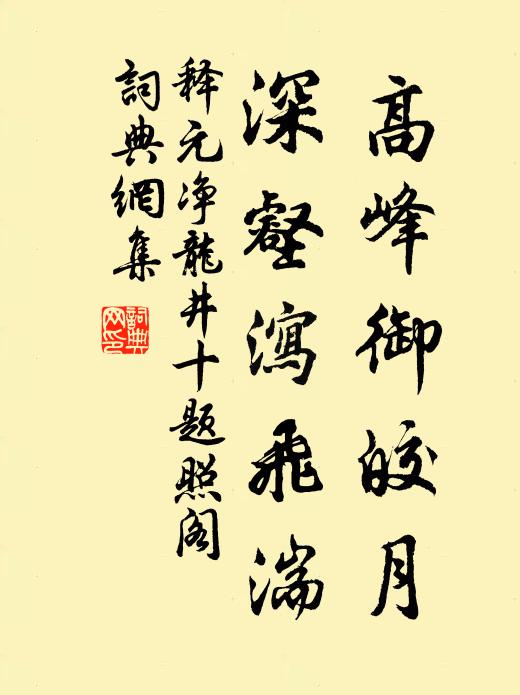 高峰御皎月
深壑瀉飛湍
释元净龍井十题照阁
詞典網集
詞典網印